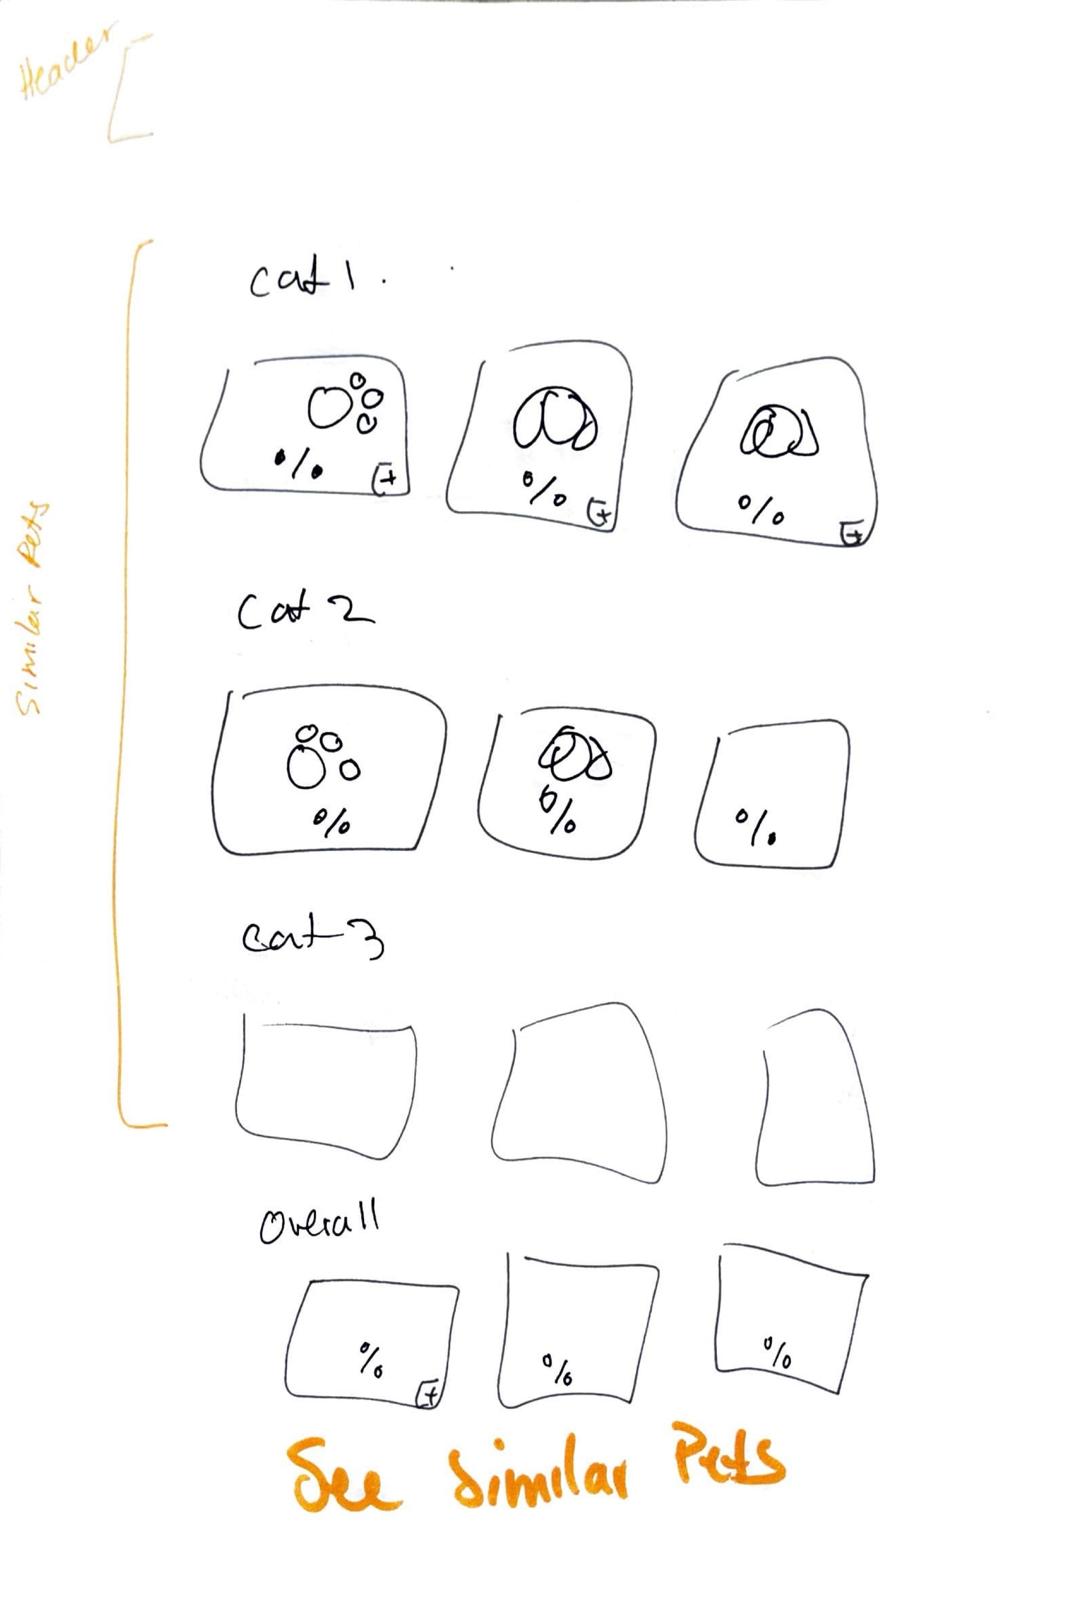 Header
cat 1.
%
+
%
+
%
+
Similar Pets
Cat 2
%
%
%
cat 3
Overall
%
+
%
%
See Similar Pets